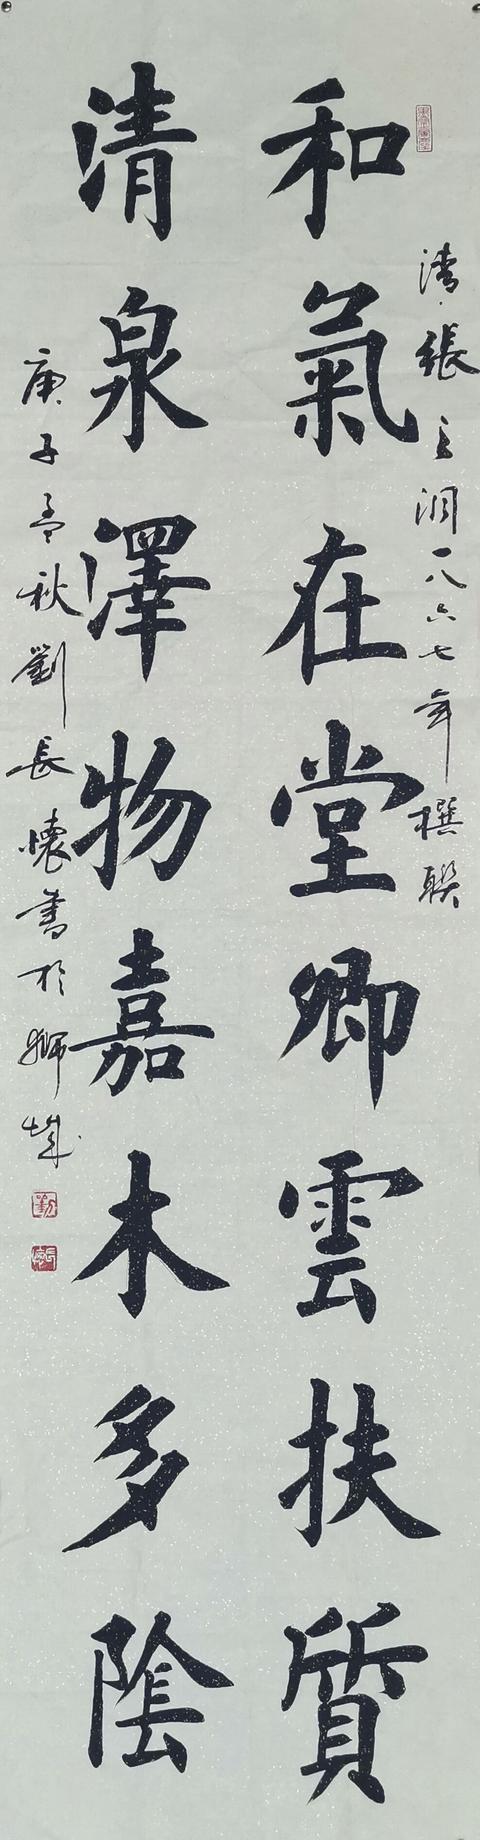 清張之洞一八六七年撰聯
和氣在堂卿雲扶質
清泉澤物嘉木多陰
庚子孟秋劉長懷書於獅城
劉
長懷